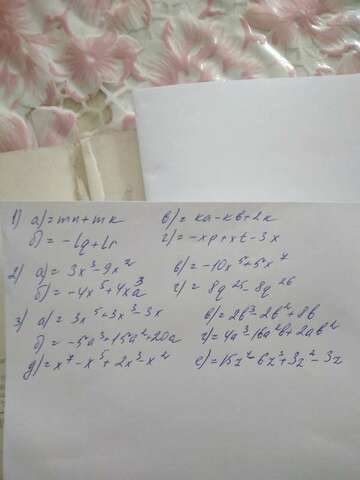 1) а) = mn + mk   в) = ka - kb + 2k
б) = -lq + lr   г) = -xp + xt - 3x
2) а) = 3x³ - 9x²   в) = -10x⁵ + 5x⁷
б) = -4x⁵ + 4xa³   г) = 8q²⁵ - 8q²⁶
3) а) = 3x⁵ + 3x³ - 3x   в) = 2b³ - 2b² + 8b
б) = -5a³ + 15a² + 20a   г) = 4a³ - 16a²b + 2ab²
д) = x⁷ - x⁵ + 2x³ - x²   е) = 15z⁷ - 6z³ + 3z² - 3z